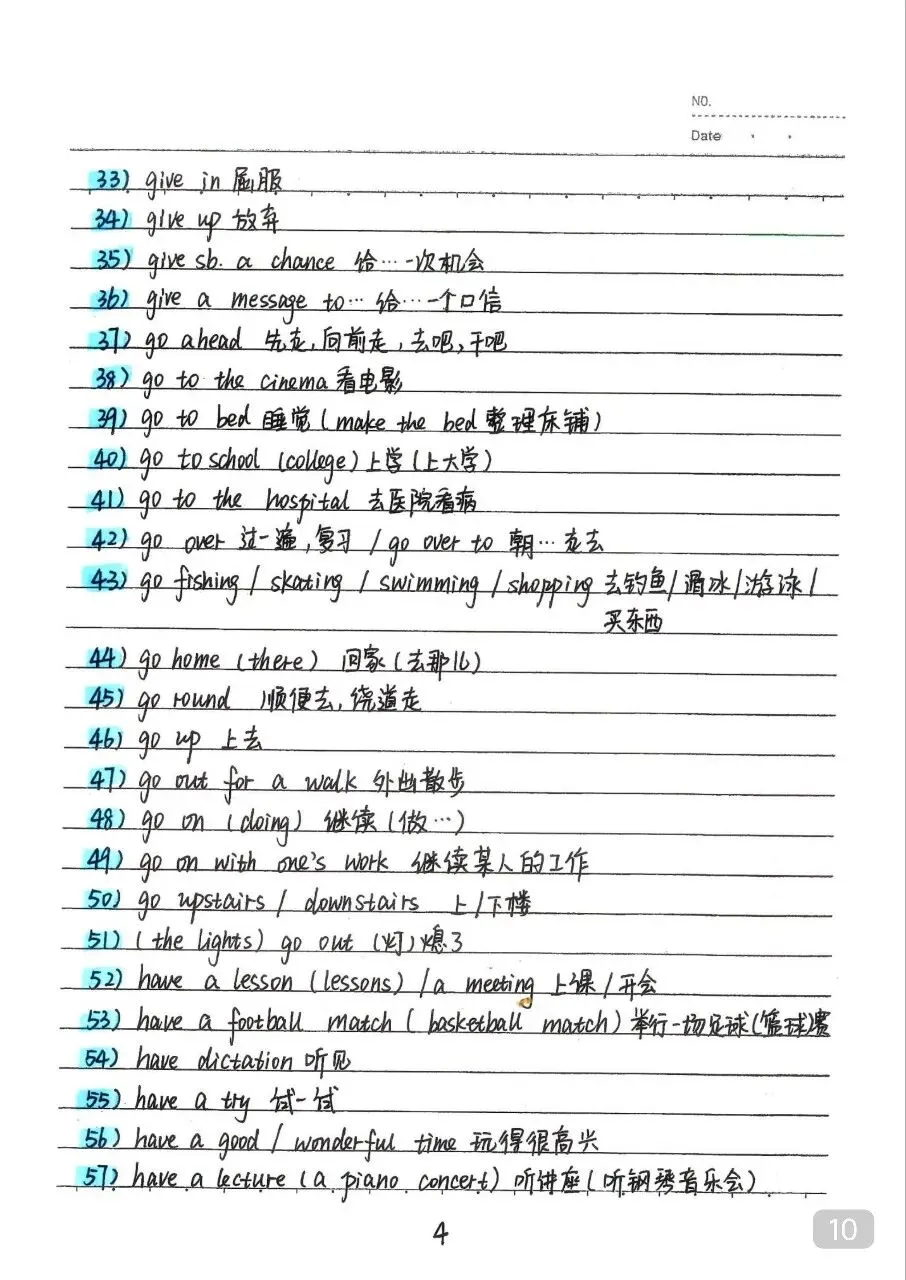 NO.
Date
33) give in 屈服
34) give up 放弃
35) give sb. a chance 给…一次机会
36) give a message to… 给…一个口信
37) go ahead 先走,向前走,去吧,干吧
38) go to the cinema 看电影
39) go to bed 睡觉(make the bed 整理床铺)
40) go to school (college)上学(上大学)
41) go to the hospital 去医院看病
42) go over 过一遍,复习 / go over to 朝…走去
43) go fishing / skating / swimming / shopping 去钓鱼/溜冰/游泳/
买东西
44) go home (there) 回家(去那儿)
45) go round 顺便去,绕道走
46) go up 上去
47) go out for a walk 外出散步
48) go on (doing) 继续(做…)
49) go on with one's work 继续某人的工作
50) go upstairs / downstairs 上/下楼
51) (the lights) go out (灯)熄了
52) have a lesson (lessons) / a meeting 上课/开会
53) have a football match (basketball match)举行一场足球(篮球)赛
54) have dictation 听见
55) have a try 试一试
56) have a good / wonderful time 玩得很高兴
57) have a lecture (a piano concert) 听讲座(听钢琴音乐会)
4
10